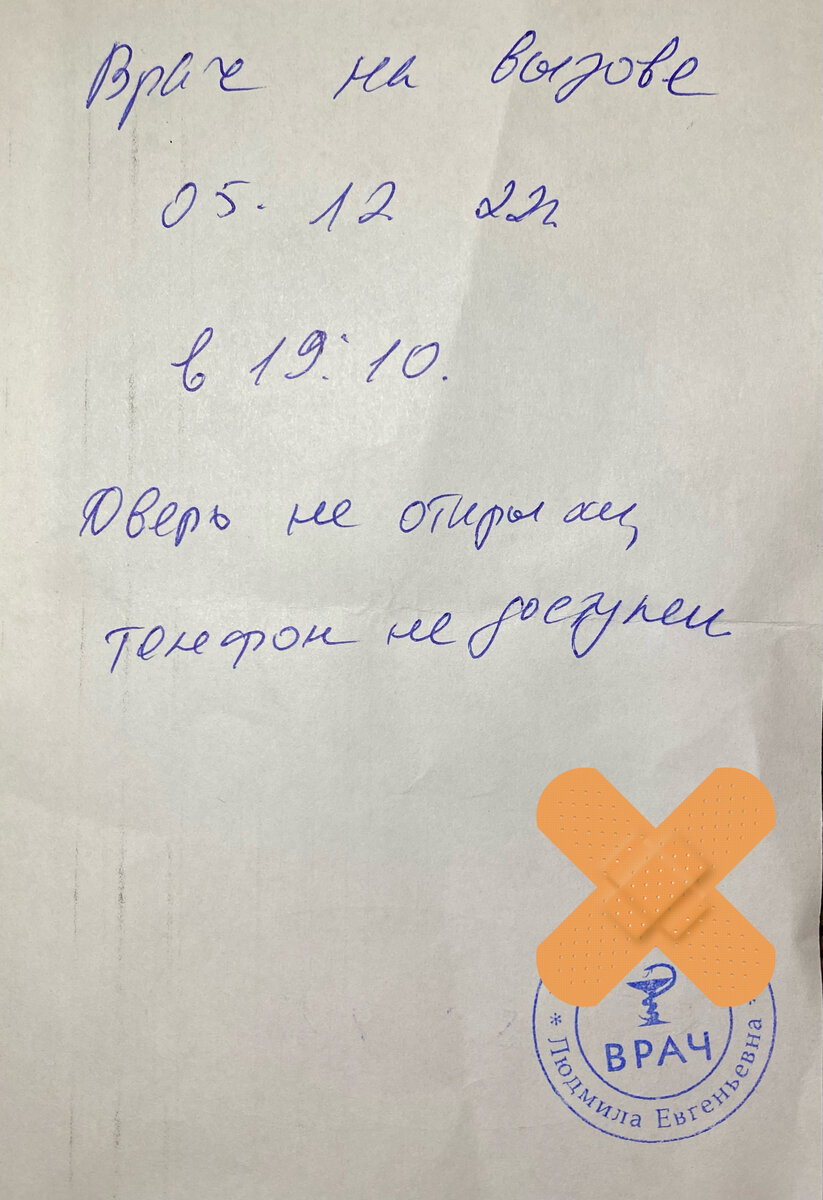 Врач на вызове
05. 12 22г.
в 19:10.
Дверь не открыли,
телефон не доступен
ВРАЧ
* Людмила Евгеньевна *